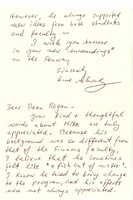 However, he always supported
new ideas from both students
and faculty —
I wish you success
in your new "surroundings"
on the
Sincerely,
Dear Dean Regan —
Your kind & thoughtful
words about Mike are truly
appreciated. Because his
background was so different from
that of the faculty
I believe that he sometimes
felt like a "fish out of water".
I know he tried to bring change
to the program, and his efforts
were not always appreciated.